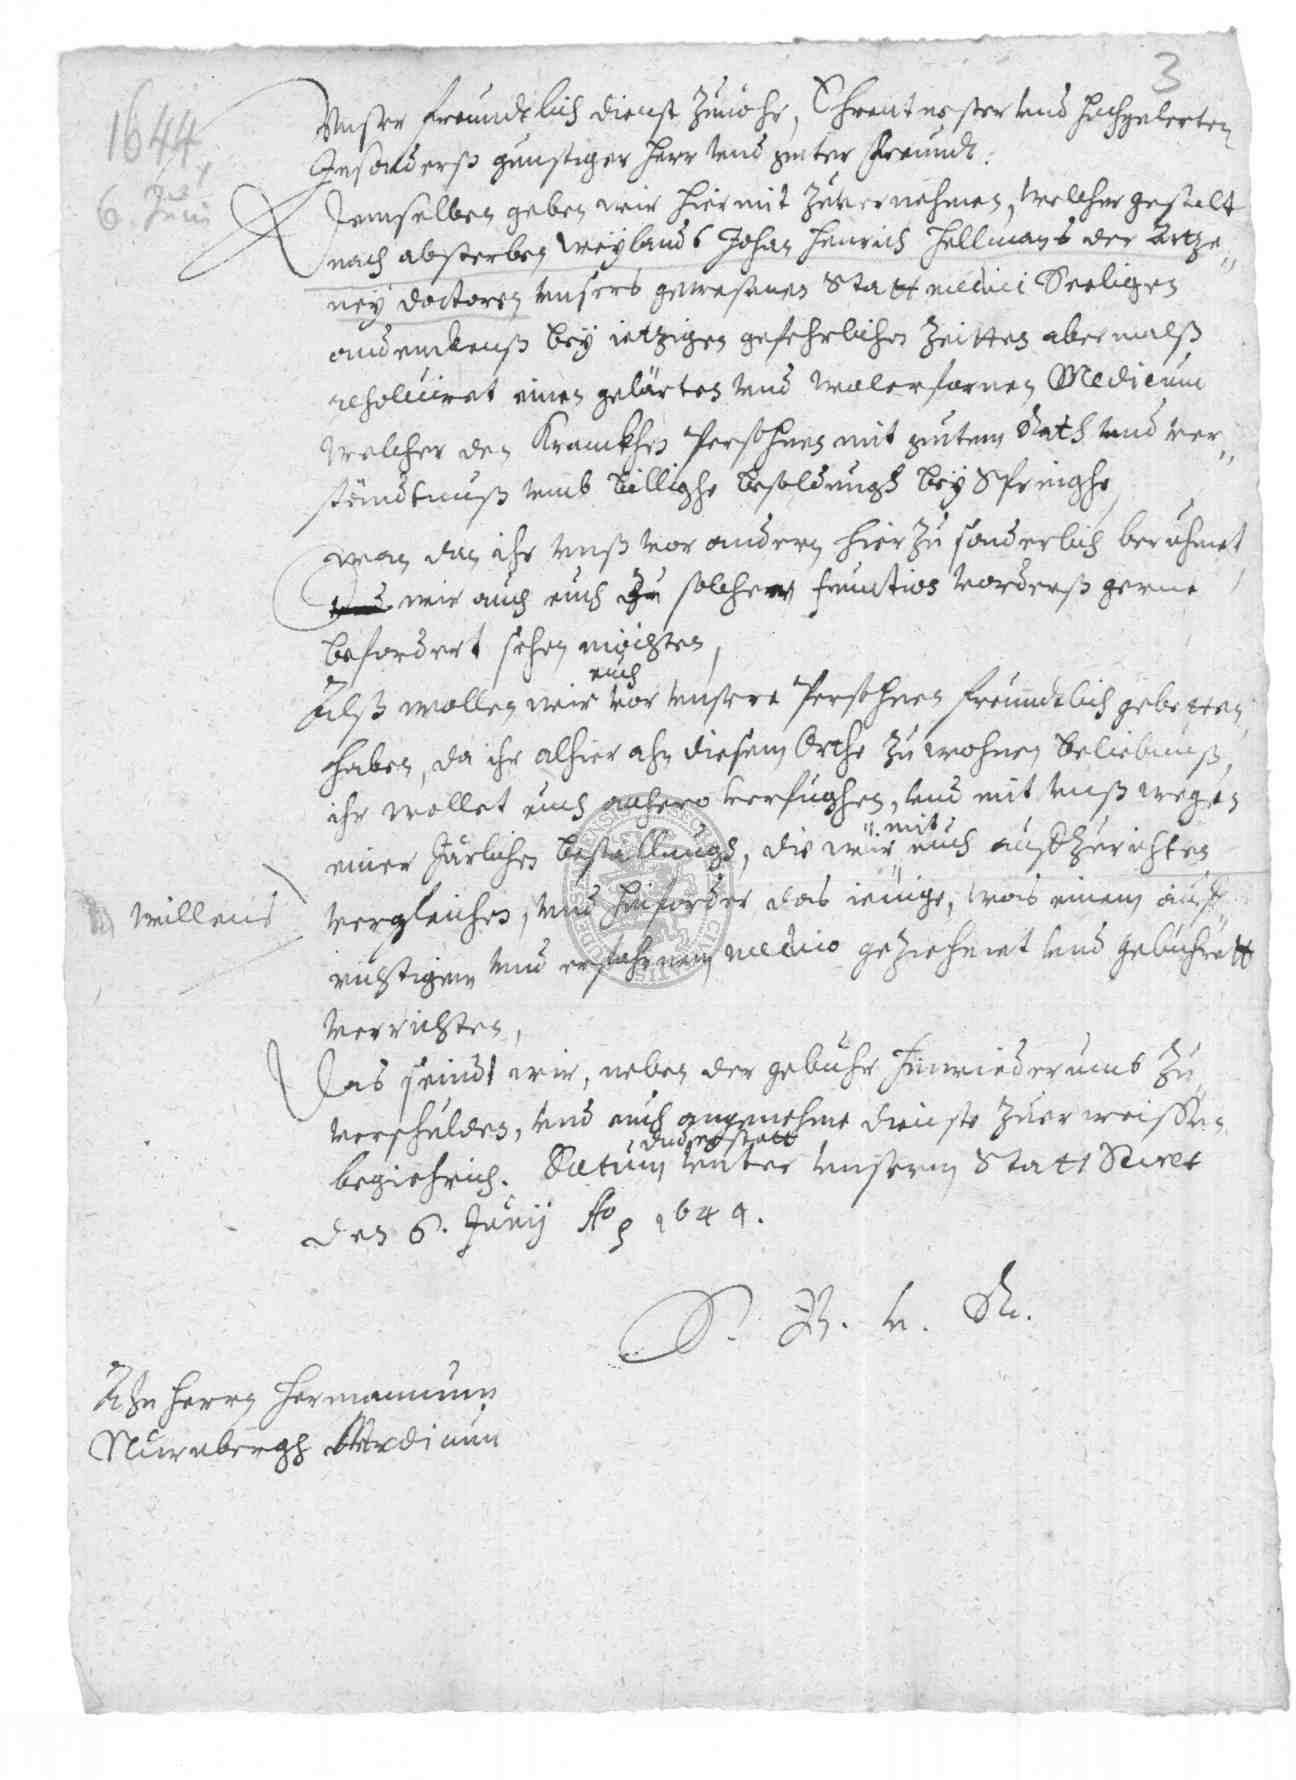 3
1644
6. Juni
Unser freundtlich dienst zuvohr, Ehrentvester und hochgelerter
Insonderß gunstiger Herr und guter freundt.
Demselben geben wir hiermit zuvernehmen, welcher gestalt
nach absterben weylands Johan Henrich Hellmans der Artze„
ney doctoren unsers gewesenen Statt medici Seeligen
andenckenß bey ietzigen gefehrlichen Zeitten abermalß
resolviret einen gelärten und wolerfarnen Medicum
welcher den Kranckhen Persohnen mit gutem Rath und ver„
ständtnuß umb billighe besoldungh bey Springhe,
wan dan ihr unß vor andern hierzu sonderlich beruhmet,
und wir auch euch zu solcher function vorderß gerne
befordert sehen möchten,
Alß wollen wir euch vor unsere Persohnen freundtlich gebetten
haben, da ihr alhier ahn diesem Orthe zu wohnen beliebnuß,
ihr wollet euch anhero verfughen, und mit unß wegen
einer Järlichen bestallungh, die wir mit euch aufzurichten
willens
vergleichen, und hinforder das ienige, was einem auf„
richtigen und erfahrnem medico geziehmet und gebuhrett
verrichten,
Das seindt wir, neben der gebuhr hinwiederumb zu
verschulden, und euch angenehme dienste zuerweissen
begiehrich. Datum Duderstatt unter unserm Statt Secret
den 6. Junij Ao 1644.
B. u. R.
Ahn Herrn Hermannum
Nurnbergh Medicum